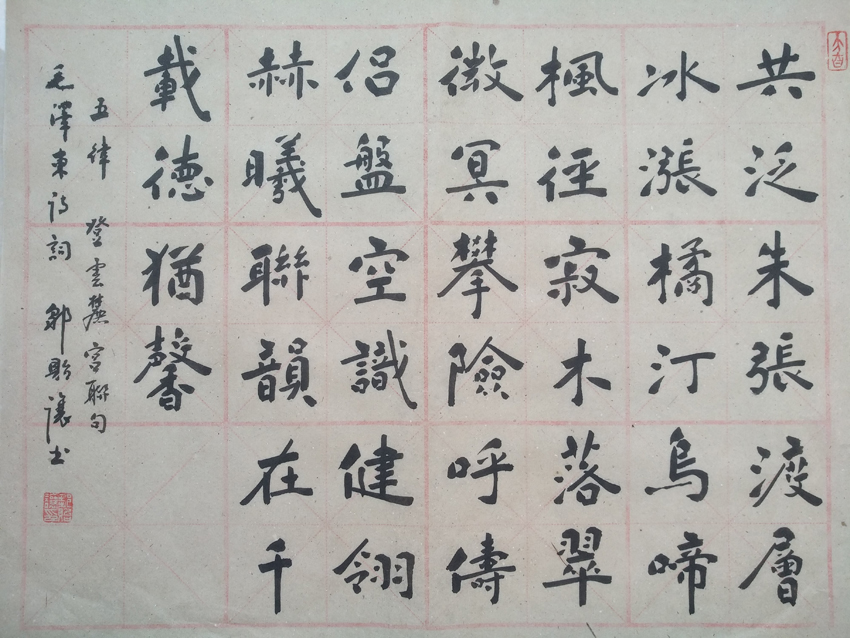 共泛朱張渡層
冰漲橘汀烏啼
楓徑寂木落翠
微冥攀險呼儔
侶盤空識健翎
赫曦聯韻在千
載德猶馨
五律 登雲麓宮聯句
毛澤東詩詞 鄒貽讓书